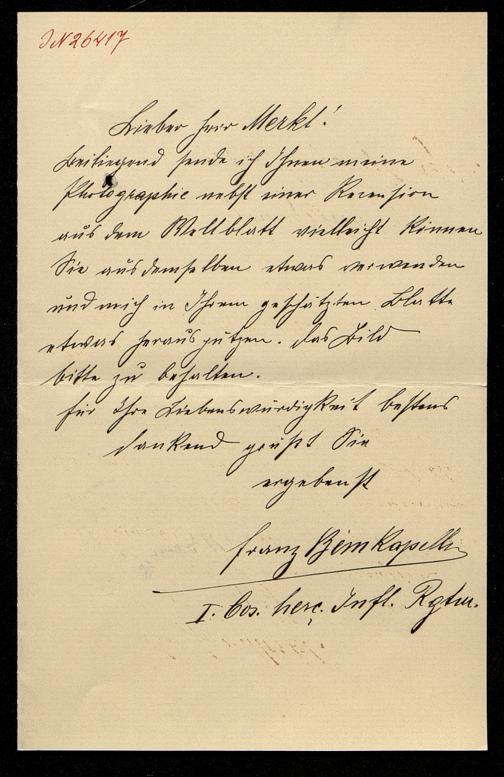 JN 26417
Lieber Herr Merkl!
Beiliegend sende ich Ihnen meine
Photographie nebst einer Recension
aus dem Weltblatt vielleicht können
Sie aus demselben etwas verwenden
und mich in Ihrem geschätzten Blatte
etwas herausputzen. Das Bild
bitte zu behalten.
Für Ihre Liebenswürdigkeit bestens
dankend grüßt Sie
ergebenst
Franz
I. Bos. herc. Inft. Rgtm.